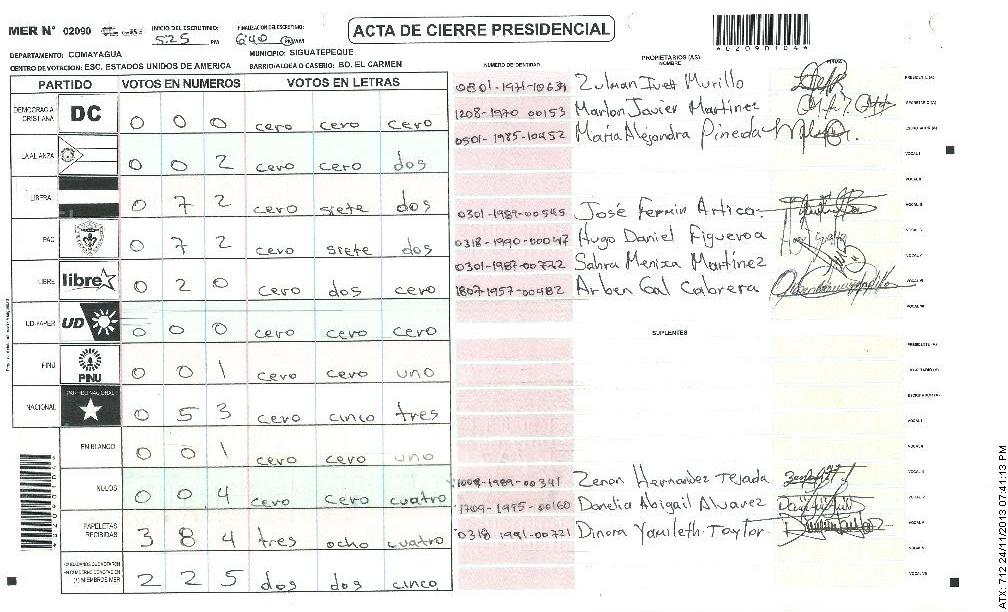 MER Nº 02090
INICIO DEL ESCRUTINIO: 5:25 PM
FINALIZACION DEL ESCRUTINIO: 6:40 PM
ACTA DE CIERRE PRESIDENCIAL
DEPARTAMENTO: COMAYAGUA
MUNICIPIO: SIGUATEPEQUE
CENTRO DE VOTACION: ESC. ESTADOS UNIDOS DE AMERICA
BARRIO/ALDEA O CASERIO: BO. EL CARMEN
PARTIDO VOTOS EN NUMEROS VOTOS EN LETRAS
DEMOCRACIA CRISTIANA DC 0 0 0 cero cero cero
LA ALIANZA 0 0 2 cero cero dos
LIBERAL 0 7 2 cero siete dos
PAC 0 7 2 cero siete dos
LIBRE libre 0 2 0 cero dos cero
UD-FAPER UD 0 0 0 cero cero cero
PINU PINU 0 0 1 cero cero uno
NACIONAL PARTIDO NACIONAL 0 5 3 cero cinco tres
EN BLANCO 0 0 1 cero cero uno
NULOS 0 0 4 cero cero cuatro
PAPELETAS RECIBIDAS 3 8 4 tres ocho cuatro
2 2 5 dos dos cinco
NUMERO DE IDENTIDAD
PROPIETARIOS (AS)
NOMBRE
FIRMA
0801-1971-10634 Zulman Ivett Murillo PRESIDENTE (A)
1208-1970 00153 Marlon Javier Martinez SECRETARIO (A)
0501-1985-10452 Maria Alejandra Pineda ESCRUTADOR (A)
VOCAL I
VOCAL II
0301-1989-00545 José Fermin Artica VOCAL III
0318-1990-00047 Hugo Daniel Figueroa
0301-1987-00722 Sahra Menixa Martínez VOCAL V
1807-1957-00482 Arben Gal Cabrera
SUPLENTES
PRESIDENTE (A)
SECRETARIO (A)
ESCRUTADOR (A)
VOCAL I
VOCAL II
1008-1989-00341 Zenon Hernandez Tejada
1709-1995-00160 Danelia Abigail Alvarez
0318 1991-00721 Dinora Yamileth Taylor
ATX: 712 24/11/2013 07:41:13 PM